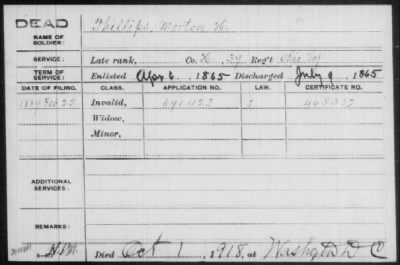 DEAD
NAME OF SOLDIER: Phillips, Morton H.
SERVICE: Late rank, Co. K, 39 Reg't Ohio Inf
TERM OF SERVICE: Enlisted Apr 6 1865 Discharged July 9 1865
DATE OF FILING. CLASS. APPLICATION NO. LAW. CERTIFICATE NO.
1889 Feb 25 Invalid, 691422
Widow,
Minor,
ADDITIONAL SERVICES:
REMARKS:
Died Oct 1, 1918, at Washgt D D